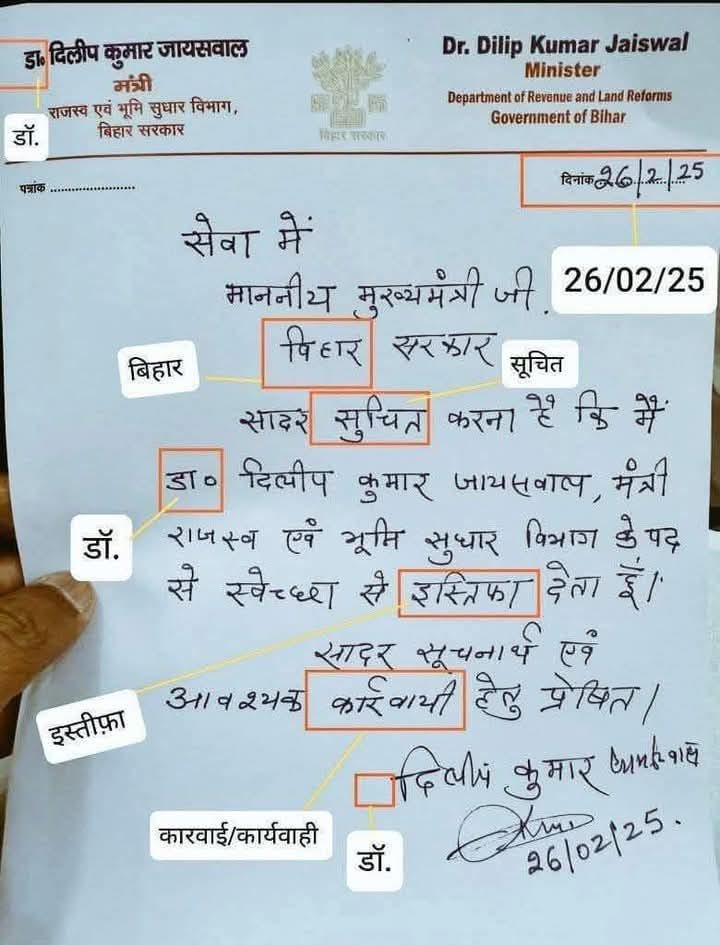 डा० दिलीप कुमार जायसवाल
मंत्री
राजस्व एवं भूमि सुधार विभाग,
बिहार सरकार
डॉ.
बिहार सरकार
Dr. Dilip Kumar Jaiswal
Minister
Department of Revenue and Land Reforms
Government of Bihar
पत्रांक ........................
दिनांक 26/2/25
26/02/25
सेवा में
माननीय मुख्यमंत्री जी.
बिहार
विहार सरकार
सूचित
सादर सुचित करना है कि मैं
डा० दिलीप कुमार जायसवाल, मंत्री
डॉ.
राजस्व एवं भूमि सुधार विभाग के पद
से स्वेच्छा से इस्तिफा देता हूँ।
सादर सूचनार्थ एवं
आवश्यक कार्रवायी हेतु प्रेषित।
इस्तीफ़ा
दिलीप कुमार जायसवाल
कारवाई/कार्यवाही
डॉ.
26/02/25.